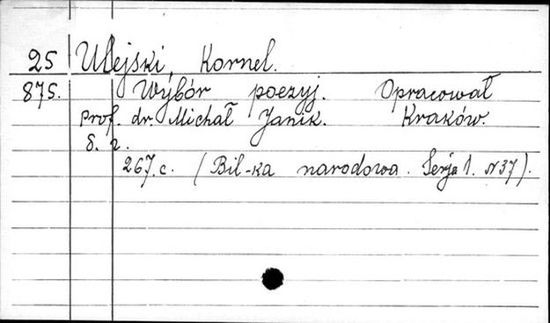 25 Ulejski, Kornel.
875. Wybór poezyj. Opracował
Prof. dr. Michał Janik. Kraków.
S. r.
267.c. (Bil-ka narodowa. Serja 1. N37).